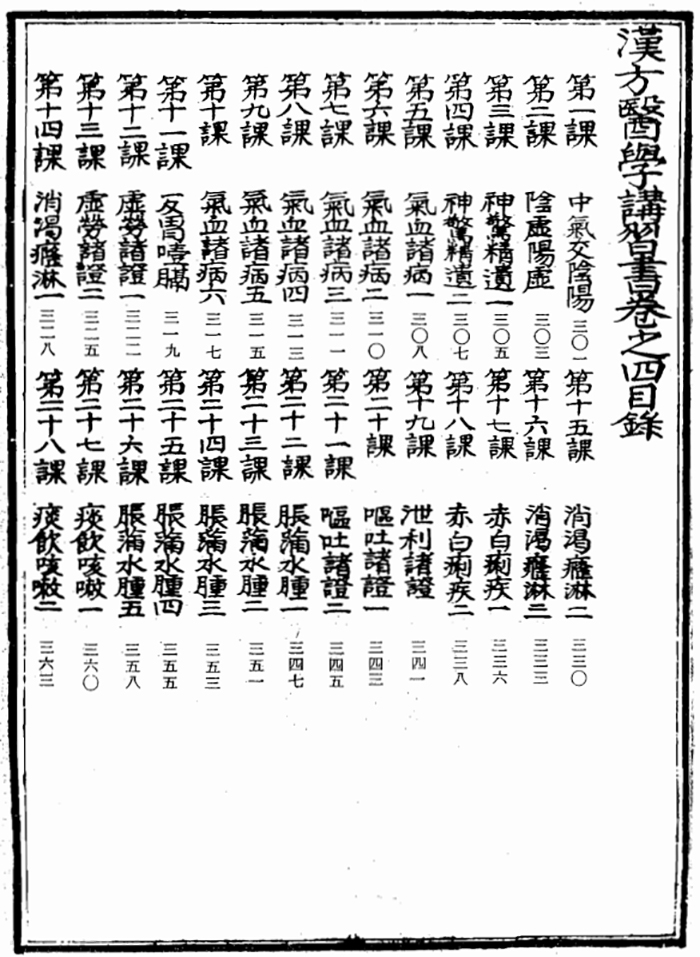 漢方醫學講習書卷之四目錄
第一課 中氣交陰陽 三〇一
第二課 陰虛陽虛 三〇三
第三課 神驚精遺一 三〇五
第四課 神驚精遺二 三〇七
第五課 氣血諸病一 三〇八
第六課 氣血諸病二 三一〇
第七課 氣血諸病三 三一一
第八課 氣血諸病四 三一三
第九課 氣血諸病五 三一五
第十課 氣血諸病六 三一七
第十一課 反胃噎膈 三一九
第十二課 虛勞諸證一 三二二
第十三課 虛勞諸證二 三二五
第十四課 消渴癃淋一 三二八
第十五課 消渴癃淋二 三三〇
第十六課 消渴癃淋三 三三三
第十七課 赤白痢疾一 三三六
第十八課 赤白痢疾二 三三八
第十九課 泄利諸證 三四一
第二十課 嘔吐諸證一 三四三
第二十一課 嘔吐諸證二 三四五
第二十二課 脹滿水腫一 三四七
第二十三課 脹滿水腫二 三五一
第二十四課 脹滿水腫三 三五三
第二十五課 脹滿水腫四 三五五
第二十六課 脹滿水腫五 三五八
第二十七課 痰飲咳嗽一 三六〇
第二十八課 痰飲咳嗽二 三六三